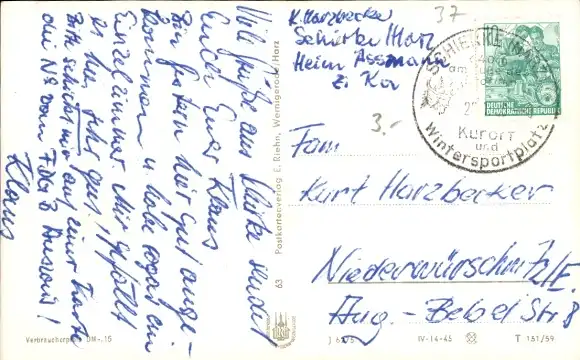 Viele Grüße aus Schierke sendet
Euch Euer Klaus
Bin gestern hier gut ange-
kommen u. habe sogar ein
Einzelzimmer. Mir gefällt
es hier sehr gut.
Bitte schickt mir auf einer Karte
die Nº vom
Klaus
K. Harzbecker
Schierke/Harz
Heim Assmann
37
3.-
SCHIERKE (HARZ)
Kurort
und
Wintersportplatz
DEUTSCHE
DEMOKRATISCHE REPUBLIK
Fam
Kurt Harzbecker
Niederwürschnitz/E.
Aug.-Bebel Str 8
Postkartenverlag E. Riehn, Wernigerode/Harz
63
Verbraucherpreis DM -.15
IV-14-45
T 151/59